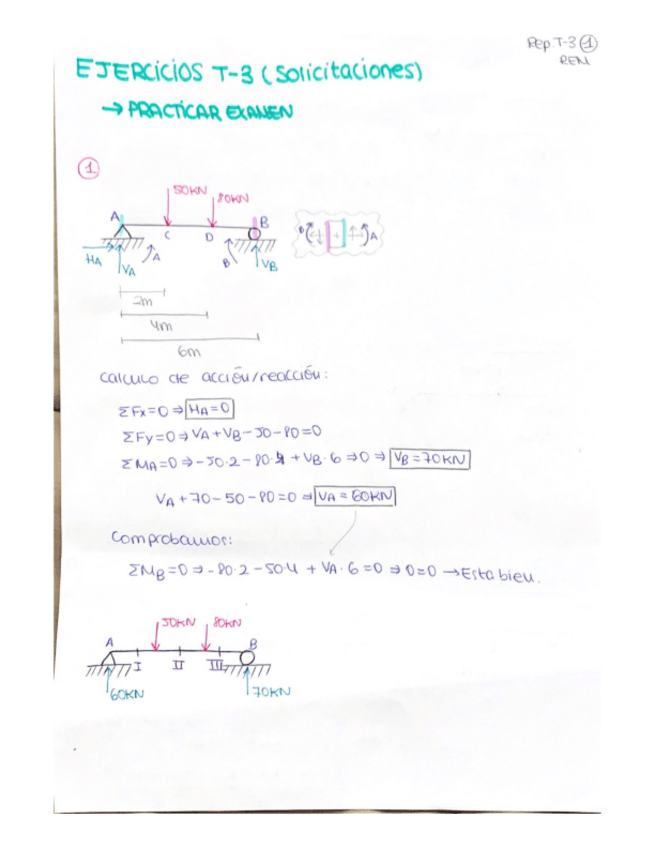 Rep. T-3 ①
REM
EJERCICIOS T-3 (Solicitaciones)
→ PRACTICAR EXAMEN
①
50KN
80KN
A
B
C
D
HA
VA
A
B
VB
B
A
2m
4m
6m
Calculo de acción/reacción:
ΣFx=0 ⇒ HA=0
ΣFy=0 ⇒ VA+VB-50-80=0
ΣMA=0 ⇒ -50·2-80·4+VB·6 ⇒ 0 ⇒ VB=70KN
VA+70-50-80=0 ⇒ VA=60KN
Comprobamos:
ΣMB=0 ⇒ -80·2-50·4+VA·6=0 ⇒ 0=0 → Esta bien.
50KN
80KN
A
B
I
II
III
60KN
70KN